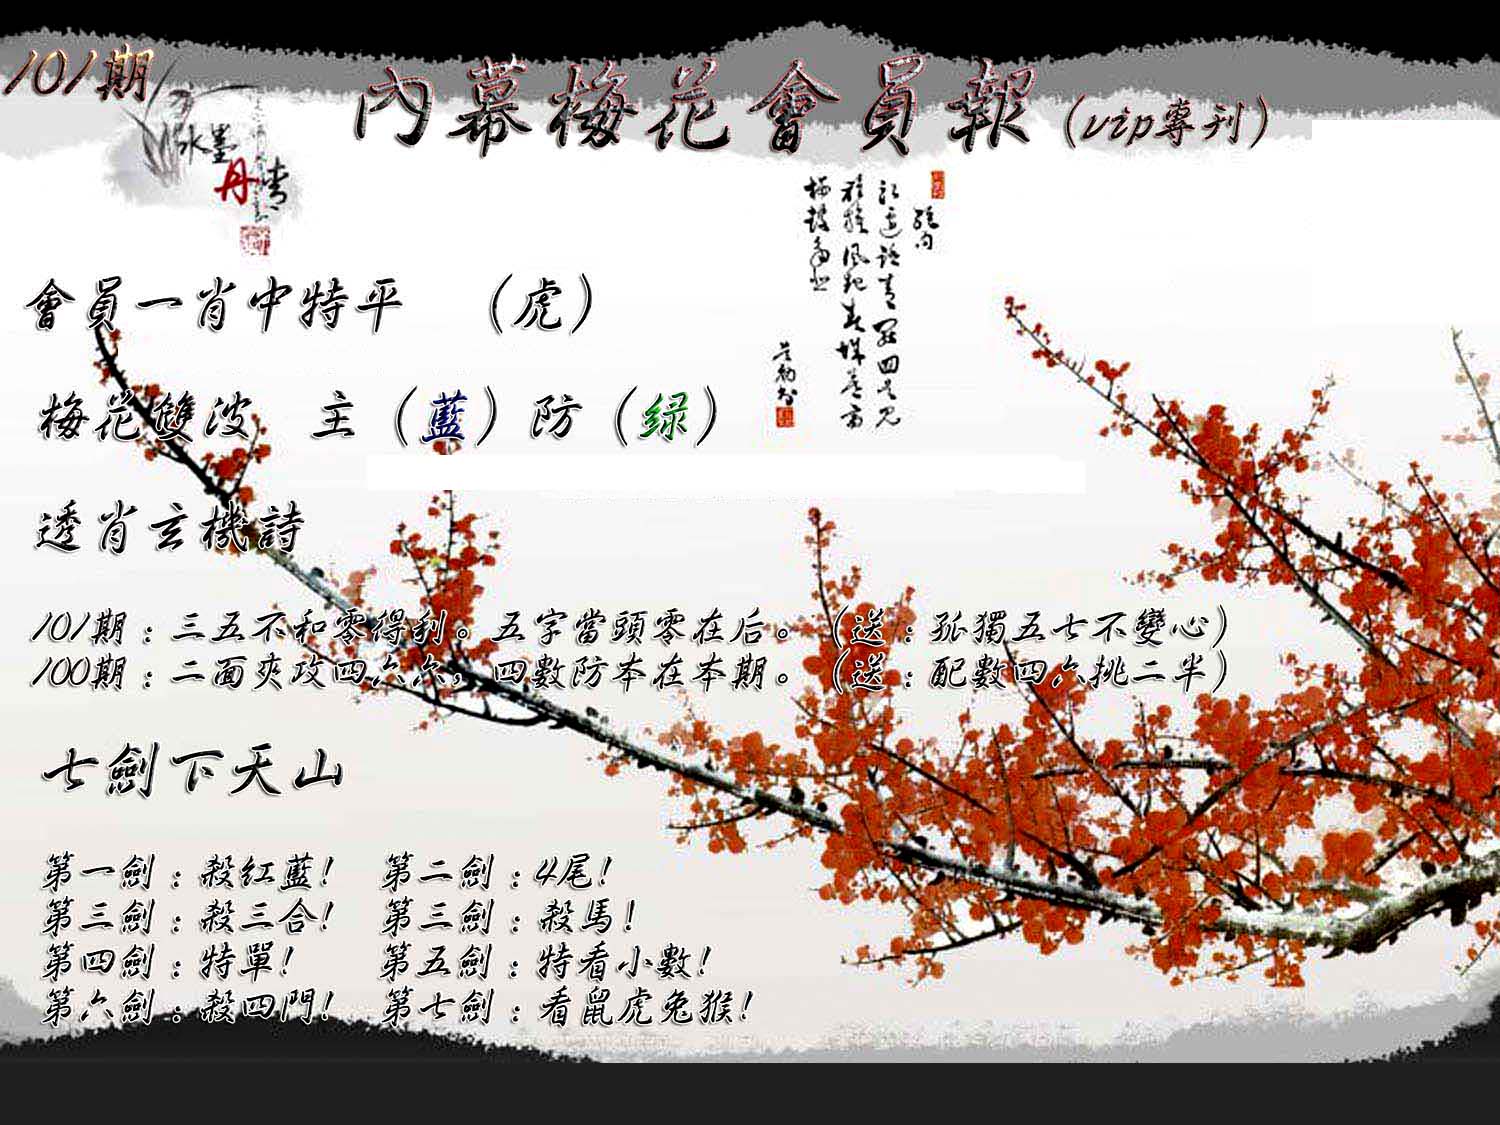 101期
內幕梅花會員報(vip專刊)
水墨
丹青
會員一肖中特平 (虎)
梅花雙波 主(藍)防(绿)
透肖玄機詩
101期:三五不和零得利。五字當頭零在后。(送:孤獨五七不變心)
100期:二面夾攻四六六,四數防本在本期。(送:配數四六挑二半)
七劍下天山
第一劍:殺红藍! 第二劍:4尾!
第三劍:殺三合! 第三劍:殺馬!
第四劍:特單! 第五劍:特看小數!
第六劍:殺四門! 第七劍:看鼠虎兔猴!